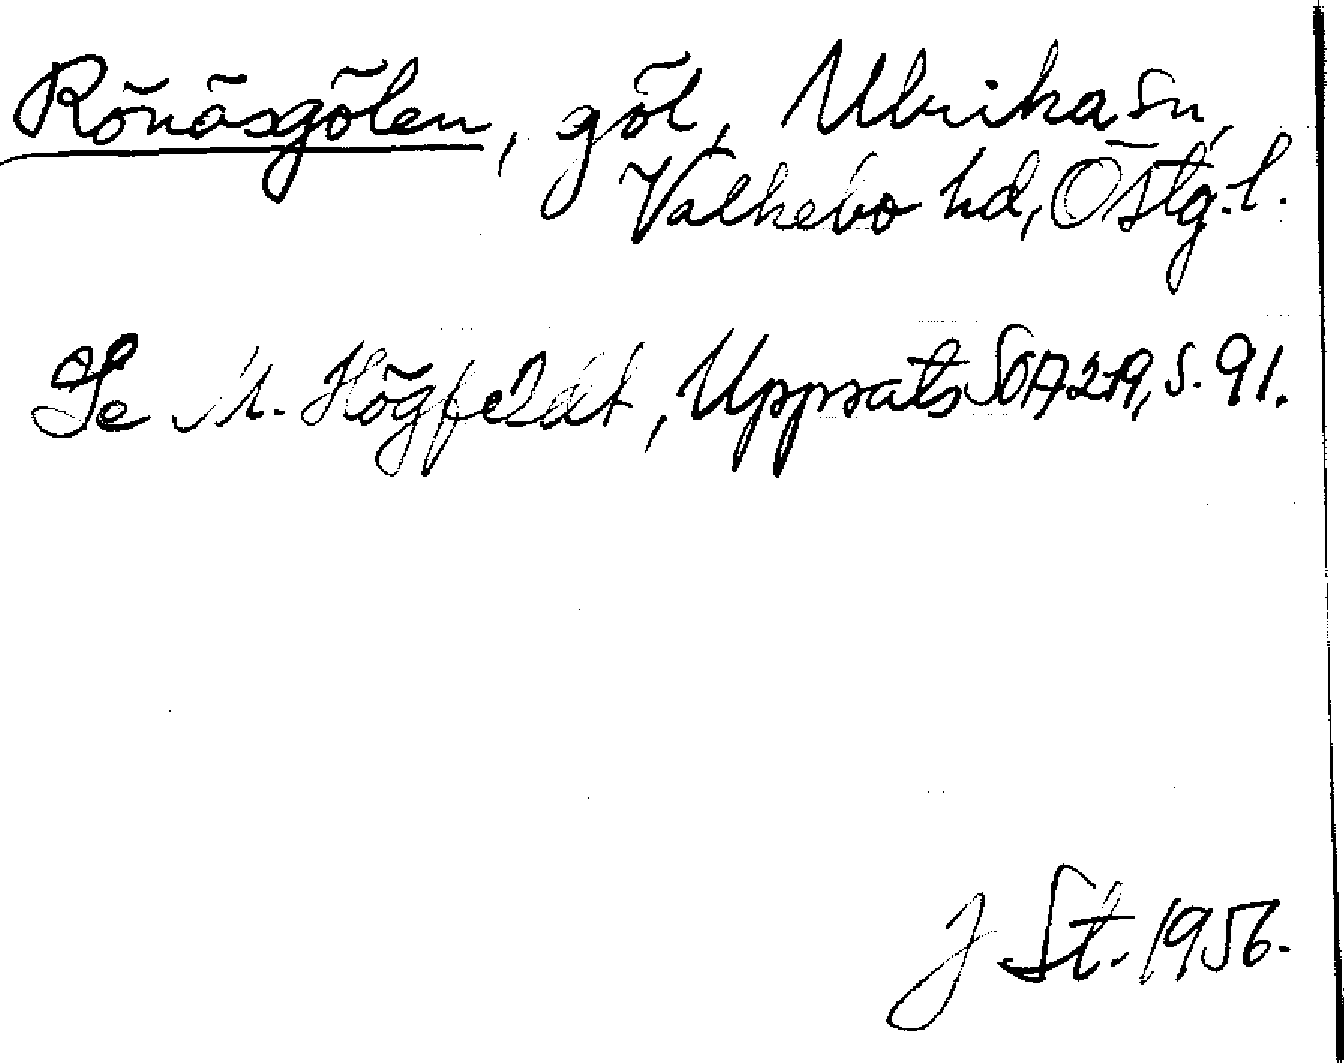 Rönäsgölen, göl, Ulrika sn,
Valkebo hd, Östg. l.
Se M. Högfeldt, Uppsats SOA 279, s. 91.
J St. 1956.